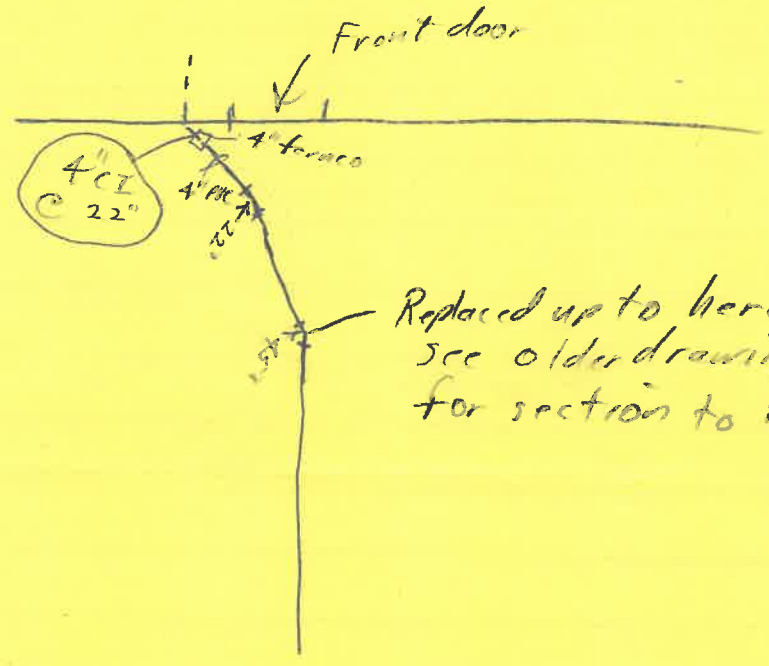 Front door
4" fernco
4" CI
@ 22"
4" PVC
22°
45°
Replaced up to here
see older drawin
for section to